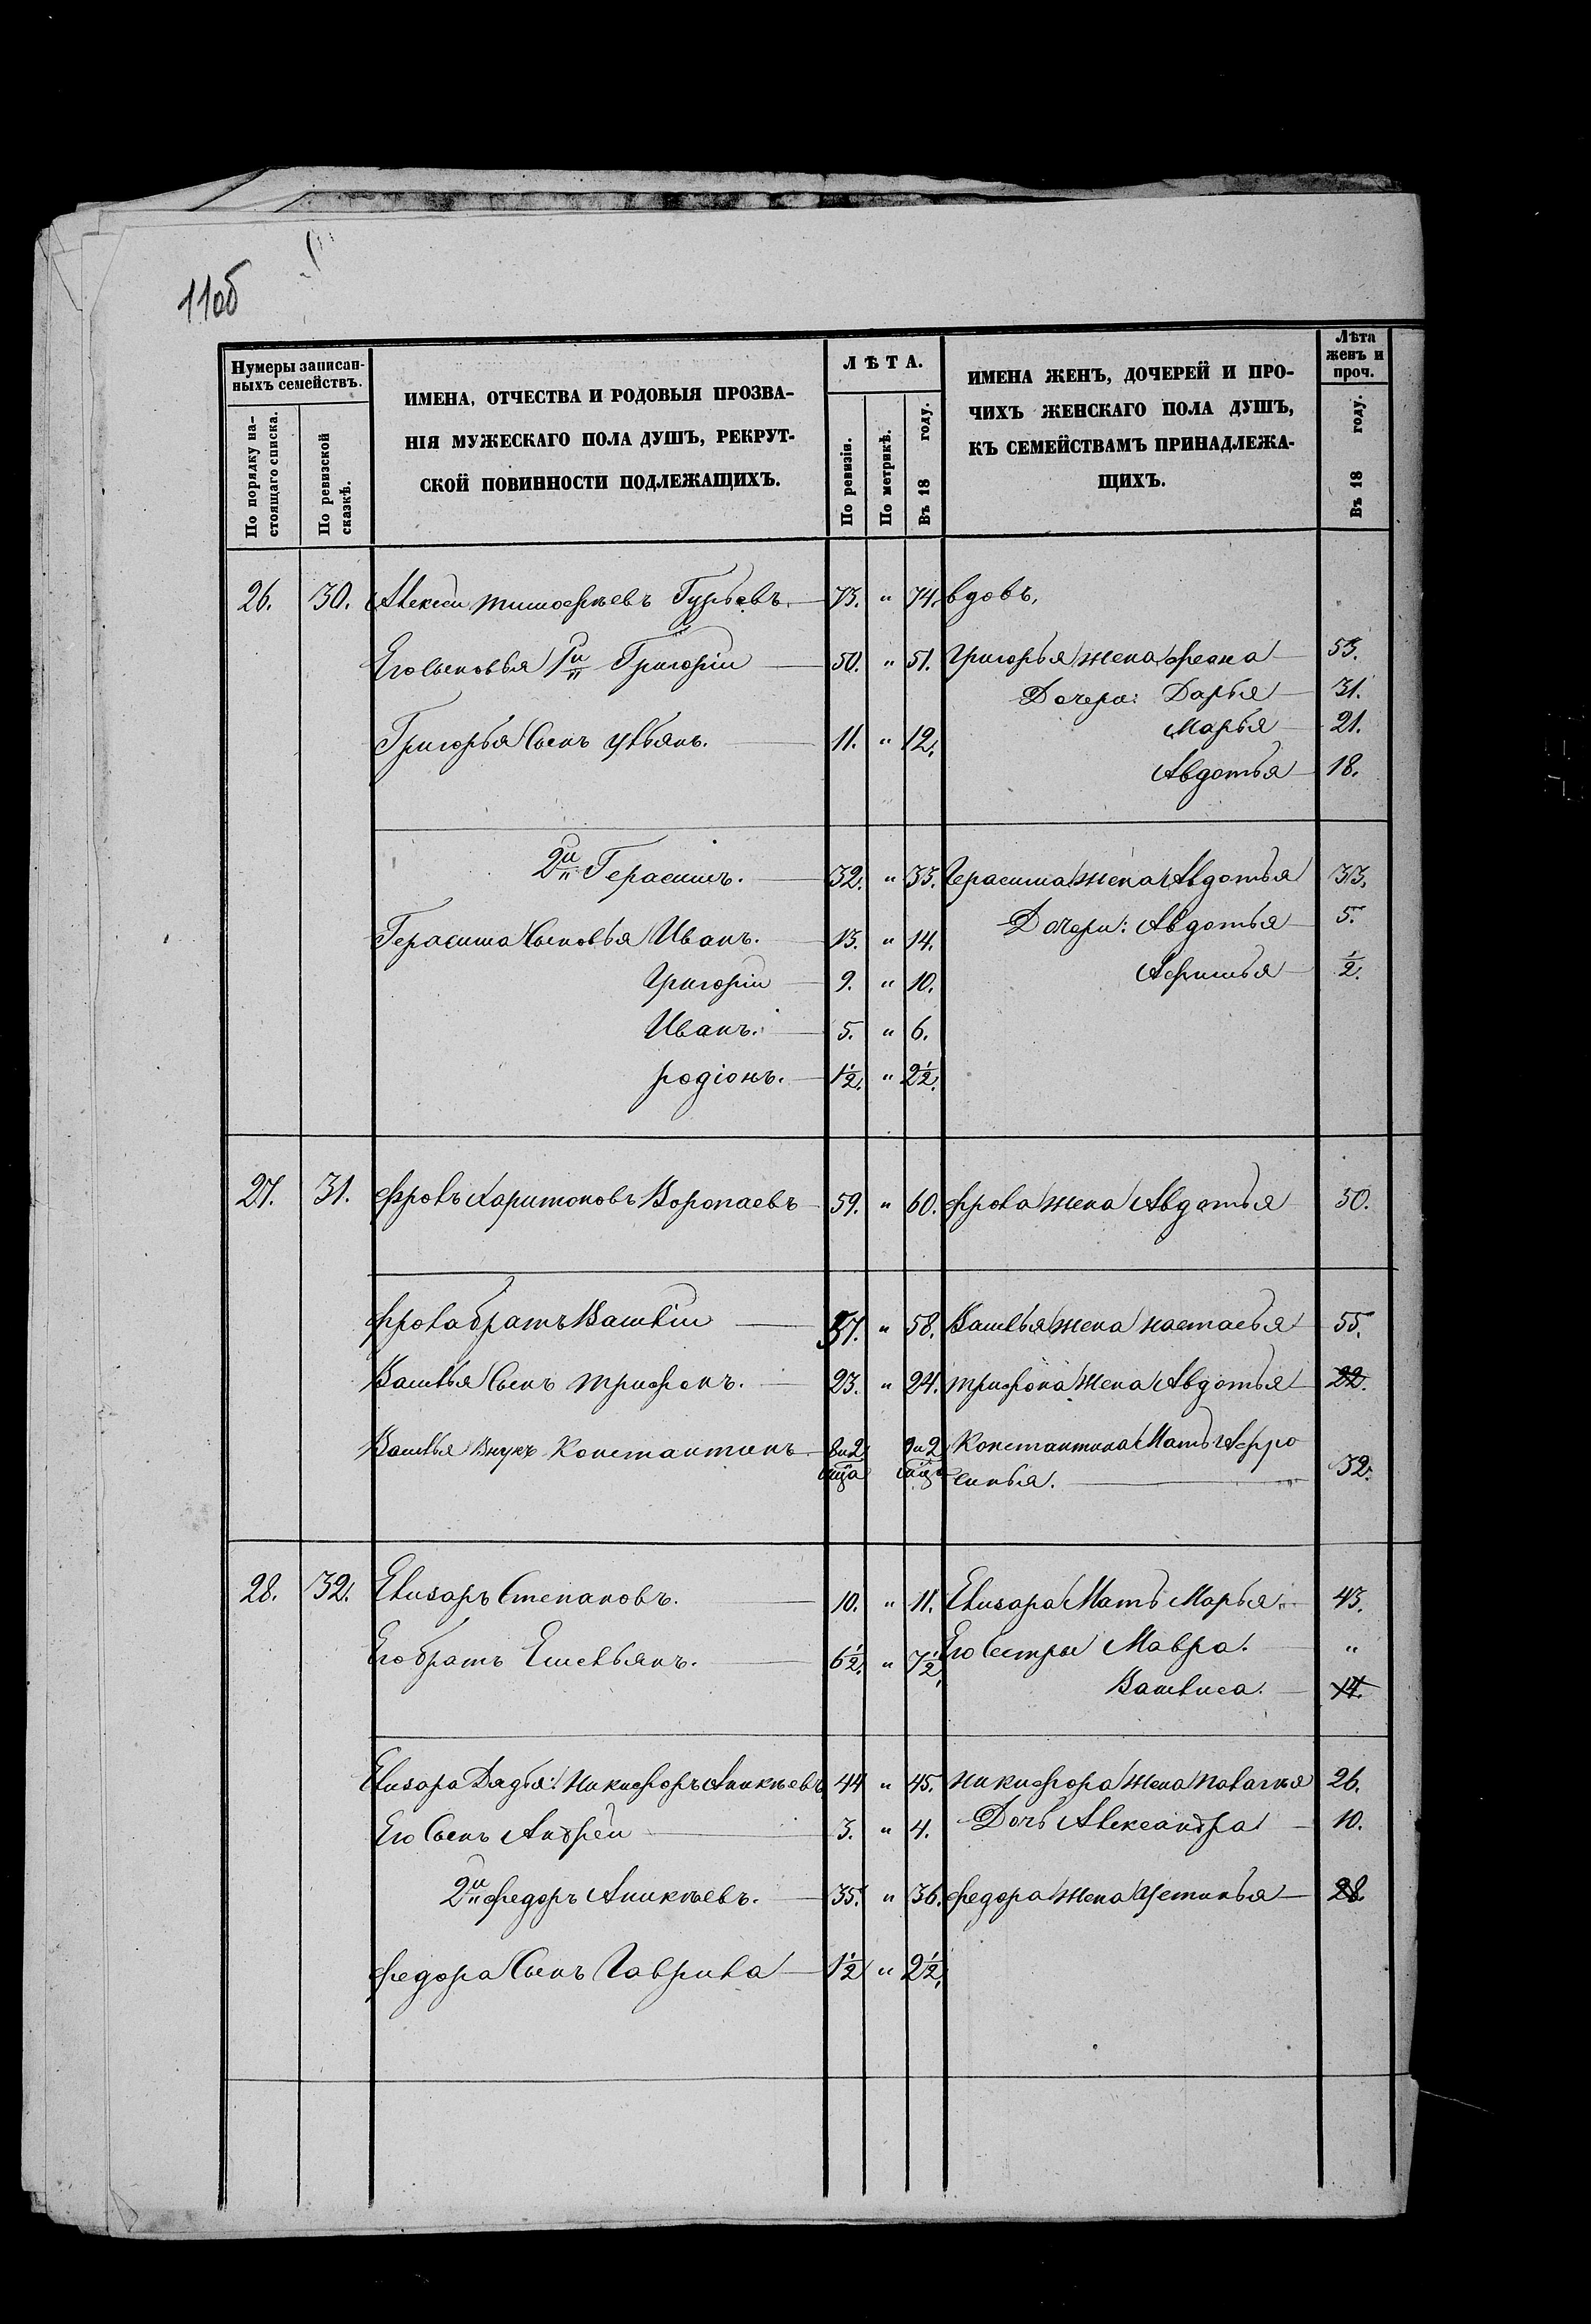 110б
Нумеры записан-
ныхъ семействъ.
По порядку на-
стоящаго списка.
По ревизской
сказкѣ.
ИМЕНА, ОТЧЕСТВА И РОДОВЫЯ ПРОЗВА-
НІЯ МУЖЕСКАГО ПОЛА ДУШЪ, РЕКРУТ-
СКОЙ ПОВИННОСТИ ПОДЛЕЖАЩИХЪ.
ЛѢТА.
По ревизіи.
По метрикѣ.
Въ 18 году.
ИМЕНА ЖЕНЪ, ДОЧЕРЕЙ И ПРО-
ЧИХЪ ЖЕНСКАГО ПОЛА ДУШЪ,
КЪ СЕМЕЙСТВАМЪ ПРИНАДЛЕЖА-
ЩИХЪ.
Лѣта
женъ и
проч.
Въ 18 году.
26. 30. Алексѣи тимофѣевъ Гурьевъ. 73. " 74. вдовъ,
Его сыновья 1й Григоріи 50. " 51. Григорья жена 53.
Дочери: Дарья 31.
Григорья Сынъ 11. " 12. Марья 21.
Авдотья 18.
2й Герасимъ. 32. " 33. Герасима жена Авдотья 33.
Герасима Сыновья Иванъ. 13. " 14. Дочери: Авдотья 5.
Григоріи 9. " 10. 1/2.
Иванъ. 5. " 6.
родіонъ. 1 1/2. " 2 1/2.
27. 31. фролъ харитоновъ Воропаевъ 59. " 60. фрола жена Авдотья 50.
фрола братъ Вавіли 57. " 58. жена настасья 55.
Сынъ трифонъ. 23. " 24. трифона жена Авдотья 22.
Внукъ Константинъ 8 и 2 мца 9 и 2 Константина Мать Афро
синья. 32.
28. 32. Елизаръ Степановъ. 10. " 11. Елизара Мать Марья. 43.
Его братъ Емельянъ. 6 1/2. " 7 1/2. Его Сестры Мавра. "
Василиса. 14.
Елизара Дядья: никифоръ Аникѣевъ 44 " 45. никифора жена пелагѣя 26.
Его Сынъ Андреи 3. " 4. Дочь Александра 10.
2й федоръ Аникѣевъ. 35. " 36. федора жена Устинья 28.
федора Сынъ Гаврила 1 1/2 " 2 1/2.